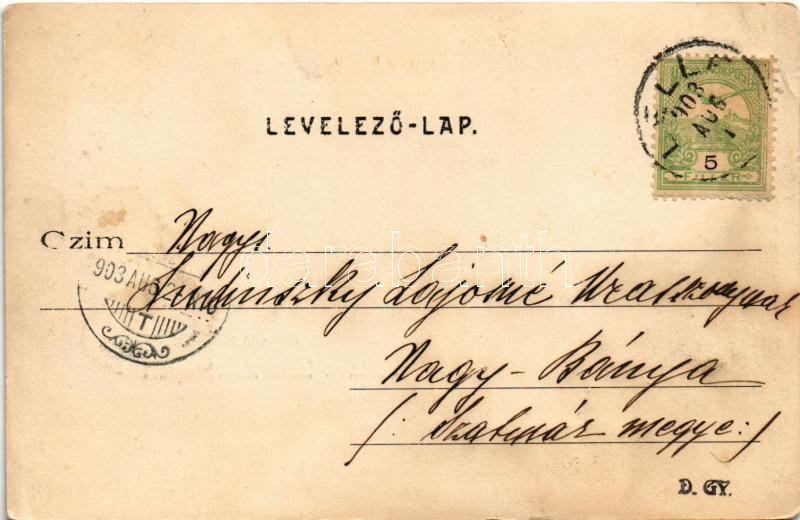 LEVELEZŐ-LAP.
LELLE
903
AUG
1
5
FILLÉR
Czim Nagys.
Lajosné Uraszonynak
903 AUG
T
Nagy-Bánya
(: Szatmár megye:)
D. GY.
darabanth